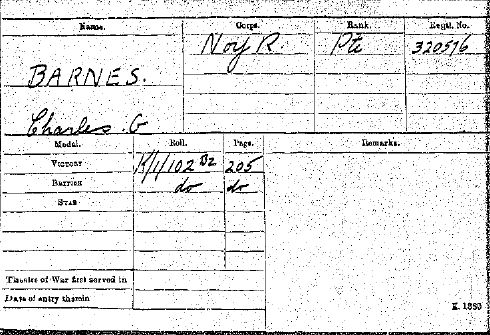 Name. Corps. Rank. Regtl. No.
BARNES. Nor R. Pte 320516
Charles. G
Medal. Roll. Page. Remarks.
VICTORY K/1/102 B2 205
BRITISH do do
STAR
Theatre of War first served in
Date of entry therein
K. 1380